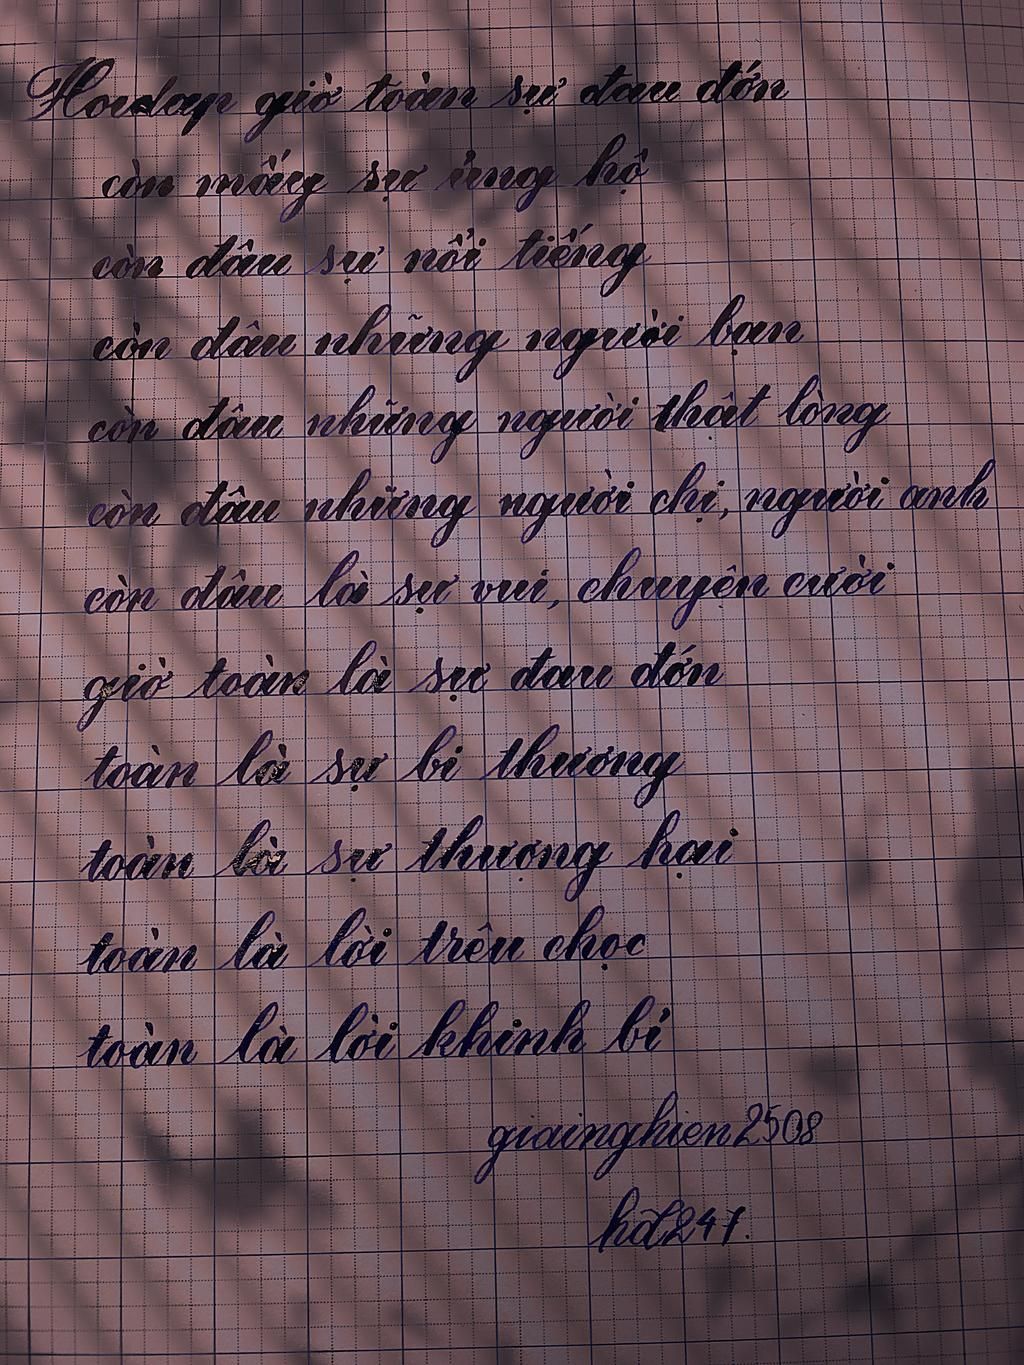 Hoidap giờ toàn sự đau đớn
còn mấy sự ủng hộ
còn đâu sự nổi tiếng
còn đâu những người bạn
còn đâu những người thật lòng
còn đâu những người chị, người anh
còn đâu là sự vui, chuyện cười
giờ toàn là sự đau đớn
toàn là sự bi thương
toàn là sự thượng hại
toàn là lời trêu chọc
toàn là lời khinh bỉ
giainghien2508
hđ247.